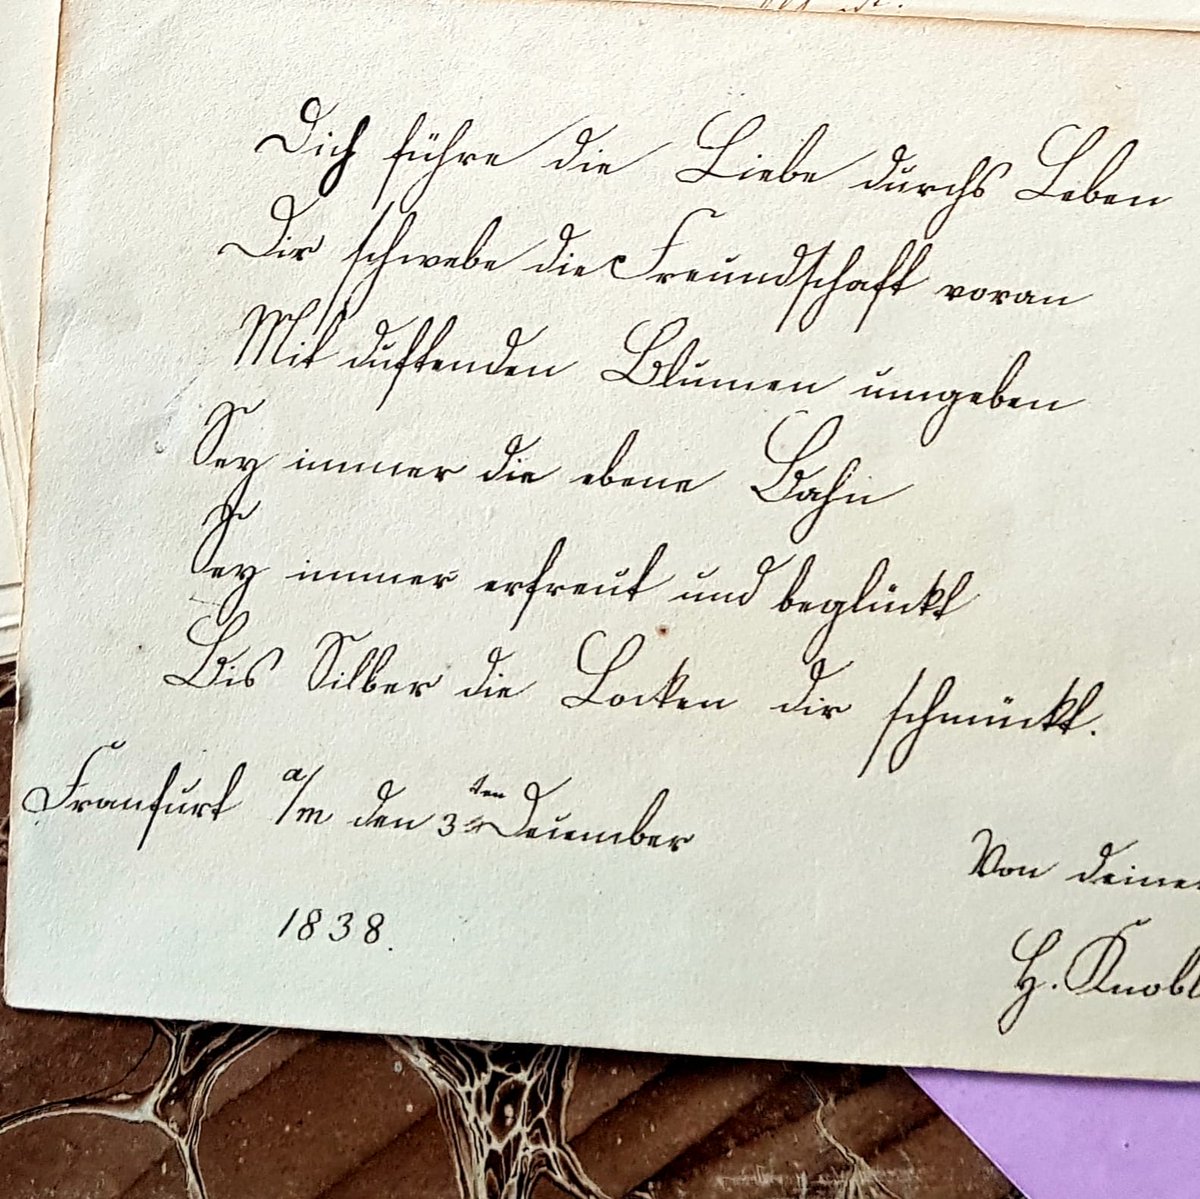 Dich führe die Liebe durchs Leben
Dir schwebe die Freundschaft voran
Mit duftenden Blumen umgeben
Sey immer die ebene Bahn
Sey immer erfreut und beglückt
Bis Silber die Locken dir schmückt.
Franfurt a/m den 3ten December
1838.
Von deiner
H. Knobl